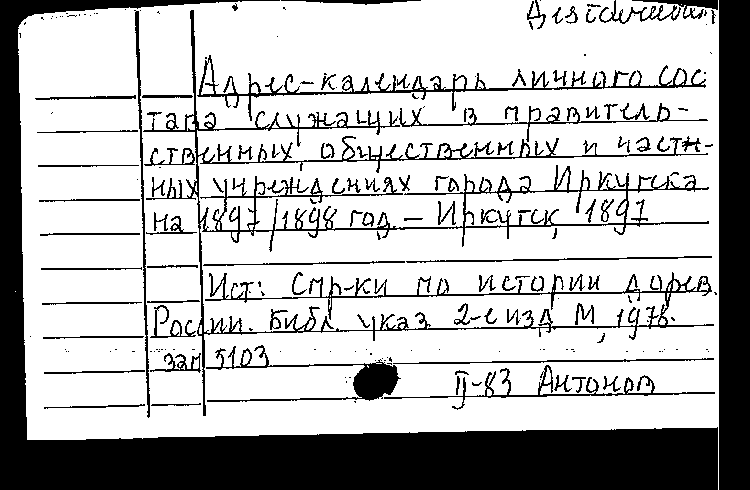 Адрес-календарь личного сос
тава служащих в правитель-
ственных, общественных и частн-
ных учреждениях города Иркутска
на 1897/1898 год - Иркутск, 1897
Ист: Спр-ки по истории дорев.
России. Библ. указ. 2-е изд М, 1978.
зап 5103
II-83 Антонов